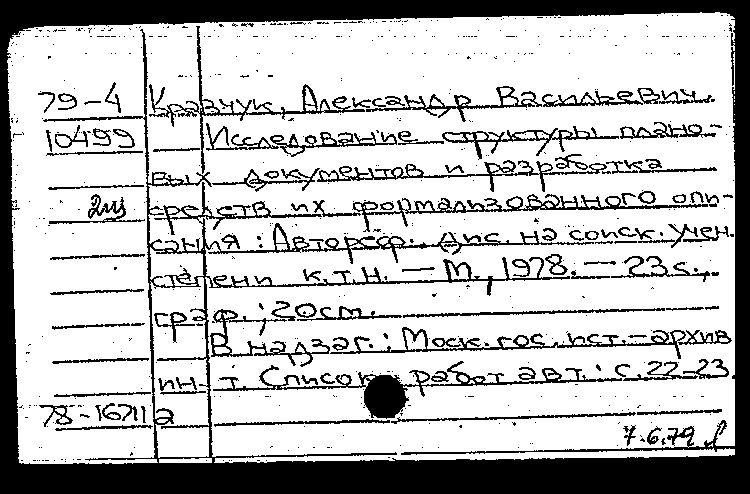 79-4 Кравчук, Александр Васильевич.
10499 Исследование структуры плано-
вых документов и разработка
средств их формализованного опи-
сания : Автореф. дис. на соиск. учен.
степени к.т.н. — М., 1978. — 23 с.,
граф. ; 20 см.
В надзаг.: Моск. гос. ист.-архив.
ин-т. Список работ авт.: с. 22-23.
78-16711 а
7.6.79